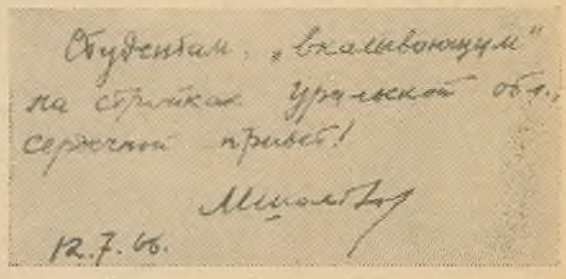 Студентам, „вкалывающим“
на стройках Уральской обл.,
сердечный привет!
12.7.66.